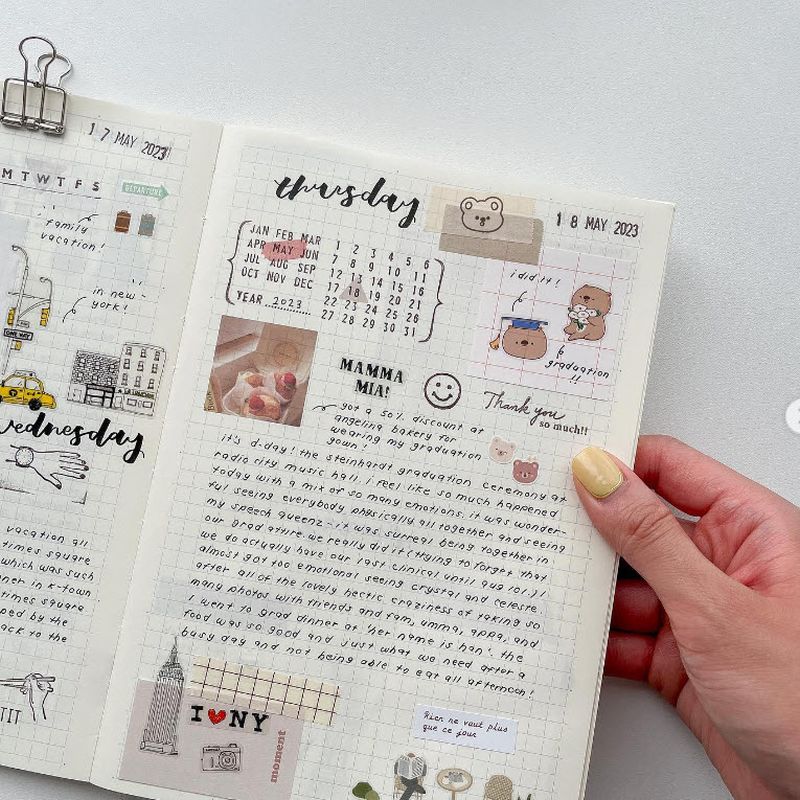 17 MAY 2023
M T W T F S
DEPARTURE
family
vacation!
in new-
york!
ONE WAY
wednesday
vacation all
times square
which was such
nner in k-town
times square
ped by the
ack to the
TIT
thusday
18 MAY 2023
JAN FEB MAR
APR MAY JUN
JUL AUG SEP
OCT NOV DEC
YEAR 2023
1 2 3 4 5 6
7 8 9 10 11
12 13 14 15 16
17 18 19 20 21
22 23 24 25 26
27 28 29 30 31
i did it!
graduation
!!
MAMMA
MIA!
Thank you
so much!!
got a 50% discount at
angelina bakery for
wearing my graduation
gown!
it's d-day! the steinhardt graduation ceremony at
radio city music hall. i feel like so much happened
today with a mix of so many emotions. it was wonder-
ful seeing everybody physically all together and seeing
my speech queenz - it was surreal being together in
our grad attire. we really did it (trying to forget that
we do actually have our last clinical until aug 1st.)! i
almost got too emotional seeing crystal and celeste
after all of the lovely hectic craziness of taking so
many photos with friends and fam, umma, appa, and
i went to grad dinner at 'her name is han'. the
food was so good and just what we need after a
busy day and not being able to eat all afternoon!
I NY
moment
Rien ne vaut plus
que ce jour